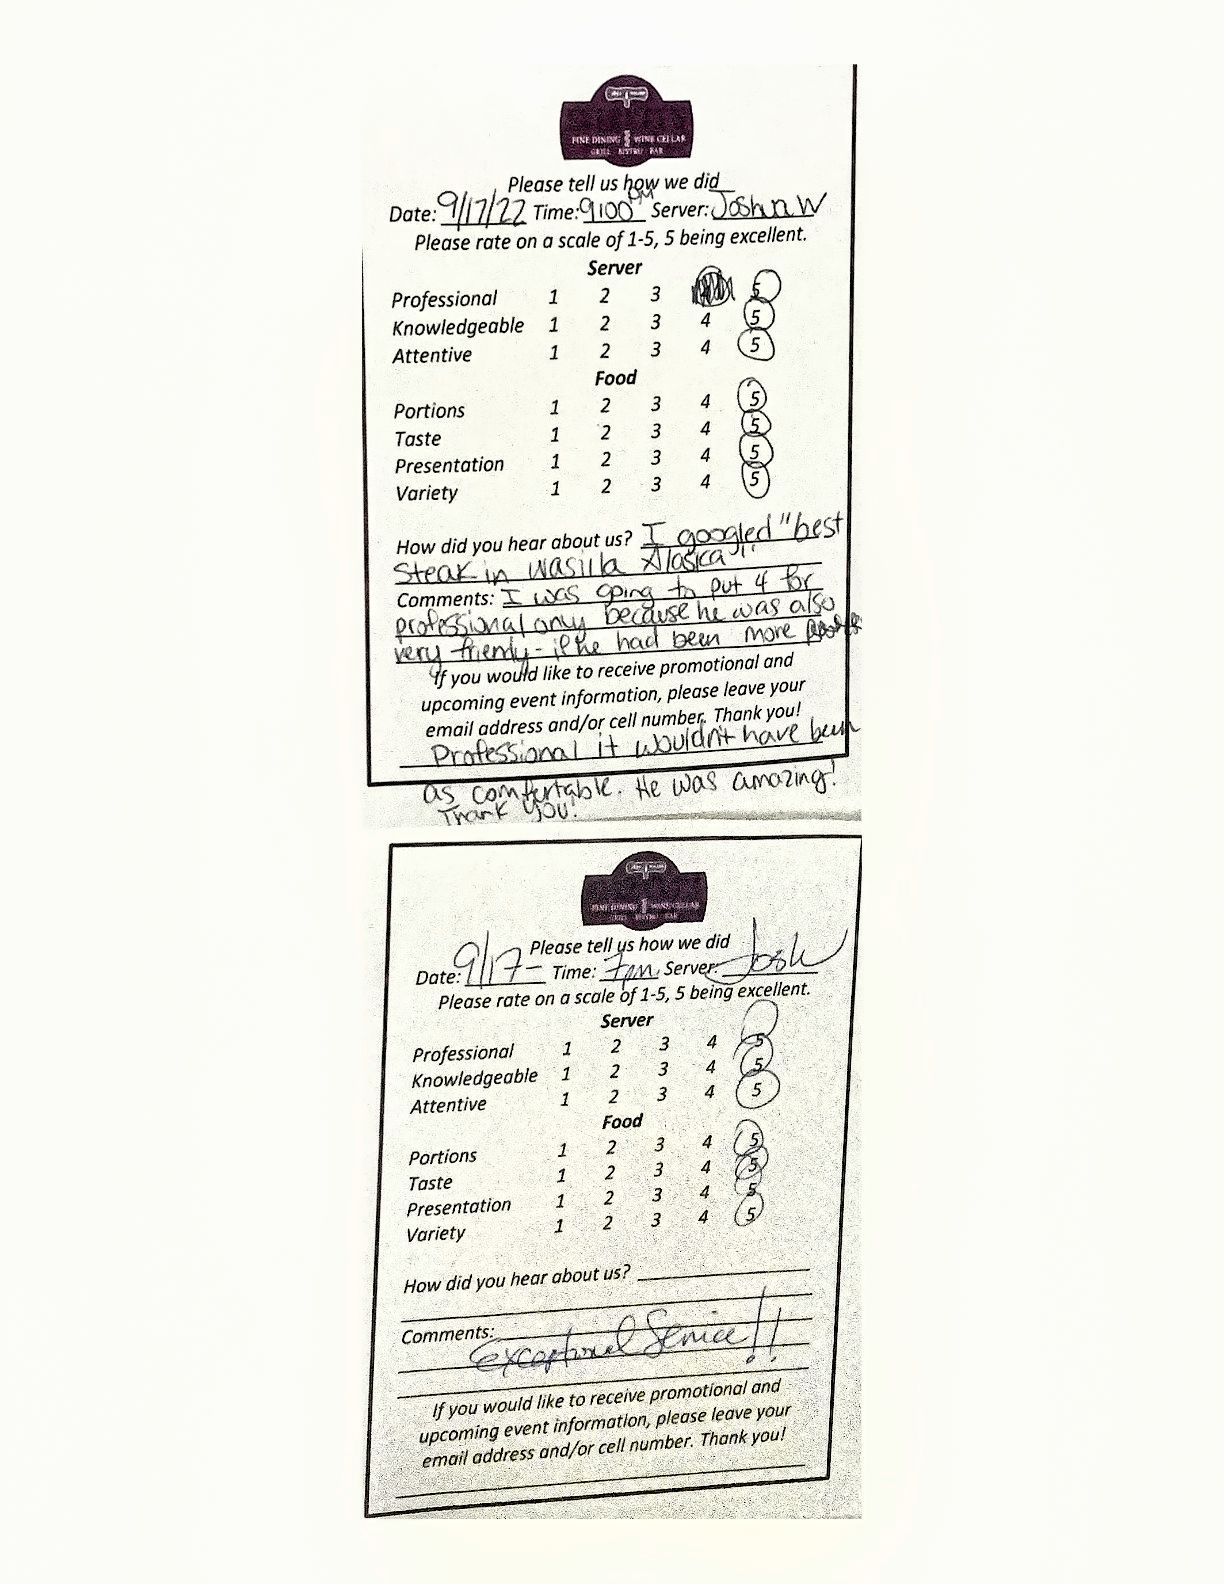 FINE DINING WINE CELLAR
GRILL BISTRO BAR
Please tell us how we did
Date: 9/17/22 Time: 9:00 PM Server: Joshua W
Please rate on a scale of 1-5, 5 being excellent.
Server
Professional 1 2 3 5
Knowledgeable 1 2 3 4 5
Attentive 1 2 3 4 5
Food
Portions 1 2 3 4 5
Taste 1 2 3 4 5
Presentation 1 2 3 4 5
Variety 1 2 3 4 5
How did you hear about us? I googled "best
Steak in Wasilla Alaska"!
Comments: I was going to put 4 for
professional only because he was also
very friendly - if he had been more
If you would like to receive promotional and
upcoming event information, please leave your
email address and/or cell number. Thank you!
Professional it wouldn't have been
as comfortable. He was amazing!
Thank You!
FINE DINING WINE CELLAR
GRILL BISTRO BAR
Please tell us how we did
Date: 9/17- Time: 7pm Server: Josh
Please rate on a scale of 1-5, 5 being excellent.
Server
Professional 1 2 3 4 5
Knowledgeable 1 2 3 4 5
Attentive 1 2 3 4 5
Food
Portions 1 2 3 4 5
Taste 1 2 3 4 5
Presentation 1 2 3 4 5
Variety 1 2 3 4 5
How did you hear about us?
Comments:
Exceptional Service!!
If you would like to receive promotional and
upcoming event information, please leave your
email address and/or cell number. Thank you!